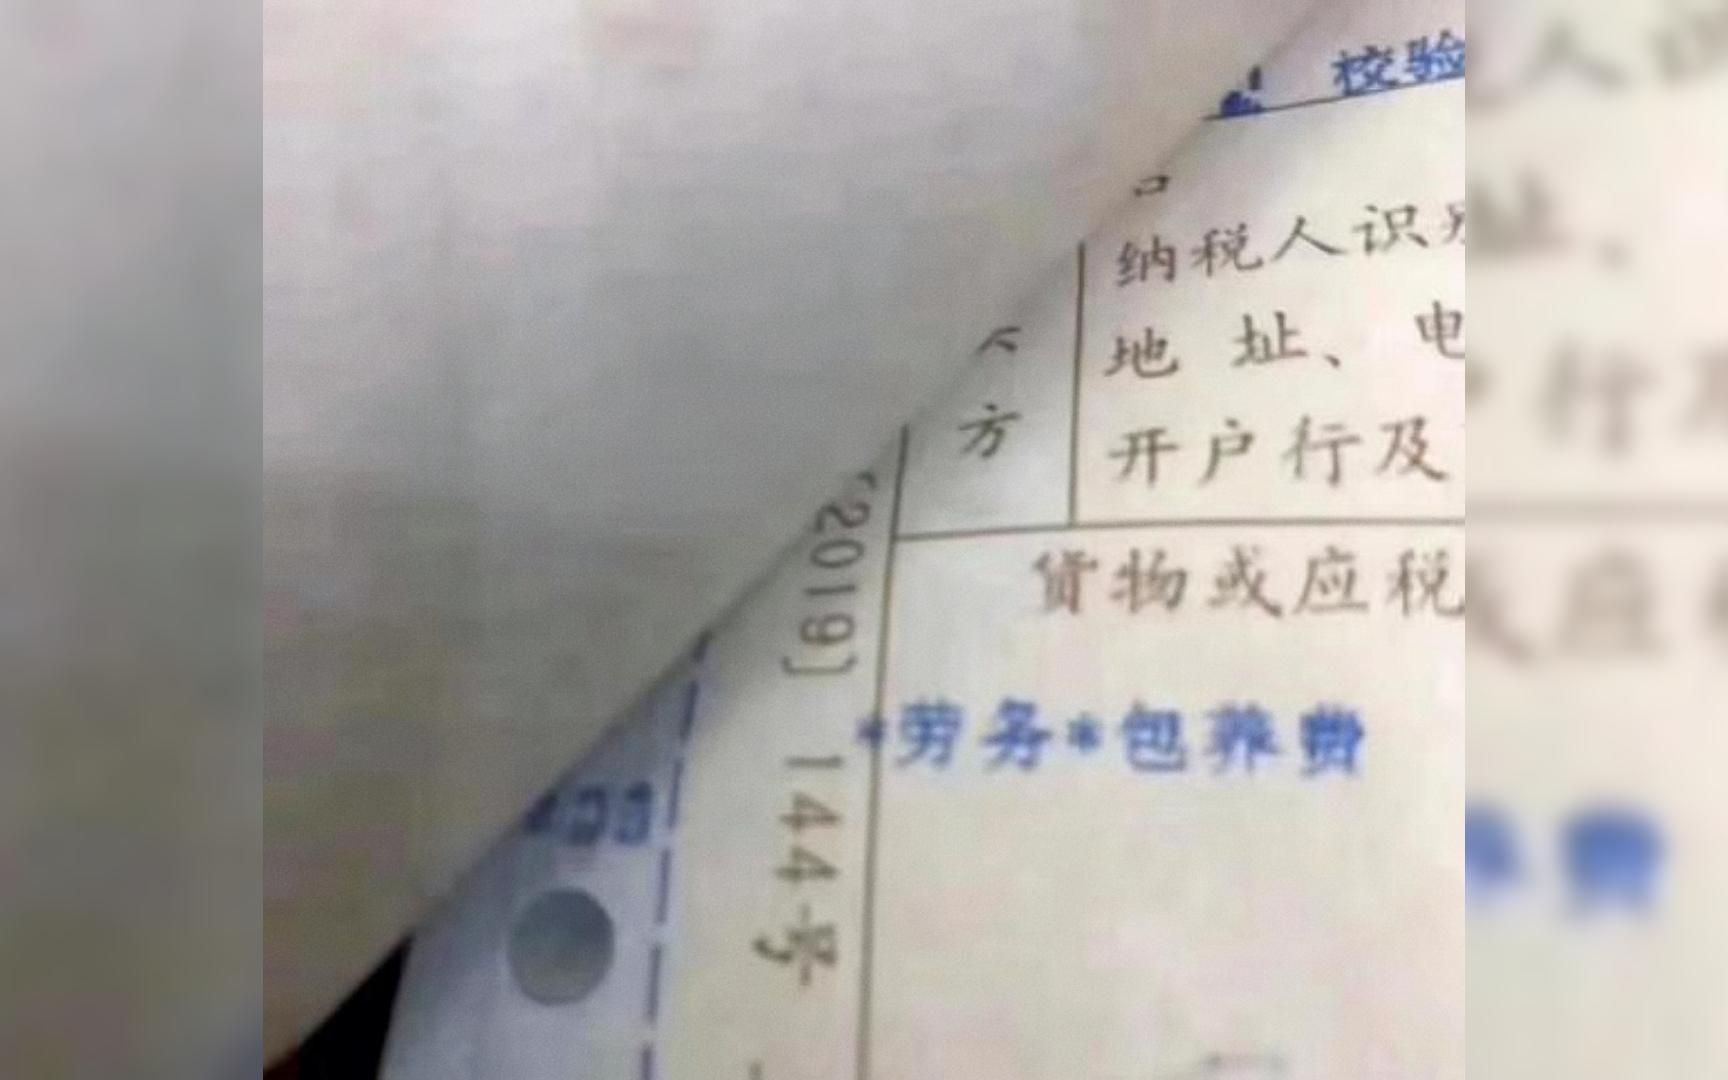 校验
纳税人识别
地址、电
方
开户行及
〔2019〕144号
货物或应税
*劳务*包养费